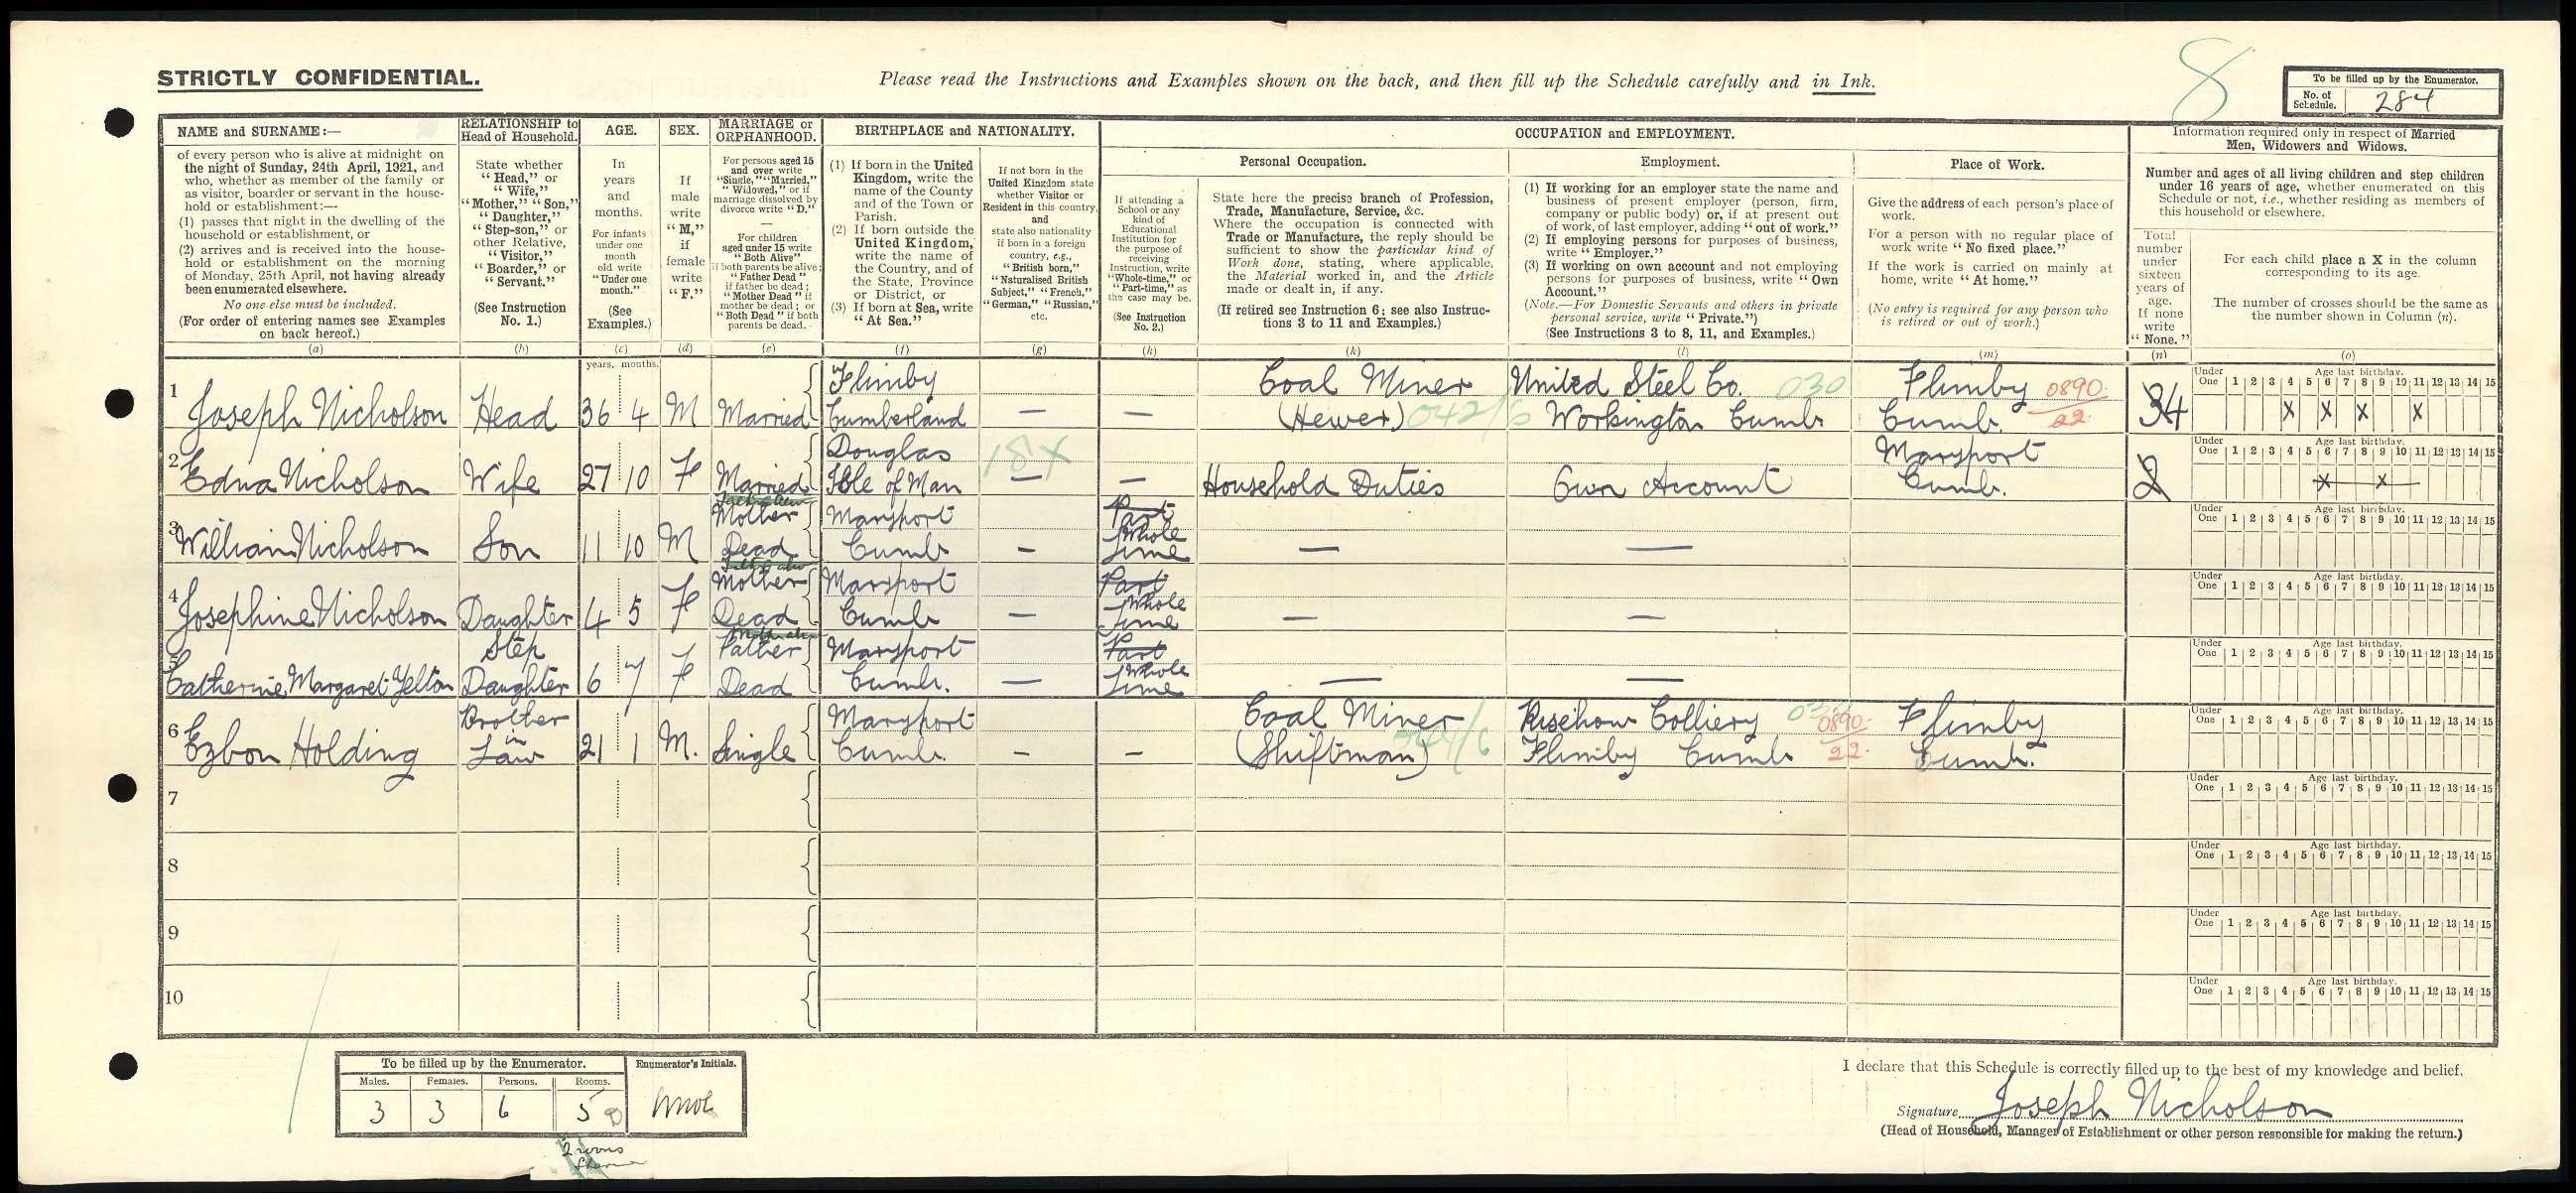 STRICTLY CONFIDENTIAL.
Please read the Instructions and Examples shown on the back, and then fill up the Schedule carefully and in Ink.
8
To be filled up by the Enumerator.
No. of Schedule. 284
NAME and SURNAME:—
of every person who is alive at midnight on
the night of Sunday, 24th April, 1921, and
who, whether as member of the family or
as visitor, boarder or servant in the house-
hold or establishment:—
(1) passes that night in the dwelling of the
household or establishment, or
(2) arrives and is received into the house-
hold or establishment on the morning
of Monday, 25th April, not having already
been enumerated elsewhere.
No one else must be included.
(For order of entering names see Examples
on back hereof.)
(a)
RELATIONSHIP to
Head of Household.
State whether
"Head," or
"Wife,"
"Mother," "Son,"
"Daughter,"
"Step-son," or
other Relative,
"Visitor,"
"Boarder," or
"Servant."
(See Instruction
No. 1.)
(b)
AGE.
In
years
and
months.
For infants
under one
month
old write
"Under one
month."
(See
Examples.)
(c)
SEX.
If
male
write
"M,"
if
female
write
"F."
(d)
MARRIAGE or
ORPHANHOOD.
For persons aged 15
and over write
"Single," "Married,"
"Widowed," or if
marriage dissolved by
divorce write "D."
—
For children
aged under 15 write
"Both Alive"
if both parents be alive;
"Father Dead"
if father be dead;
"Mother Dead" if
mother be dead; or
"Both Dead" if both
parents be dead.
(e)
BIRTHPLACE and NATIONALITY.
(1) If born in the United
Kingdom, write the
name of the County
and of the Town or
Parish.
(2) If born outside the
United Kingdom,
write the name of
the Country, and of
the State, Province
or District, or
(3) If born at Sea, write
"At Sea."
(f)
If not born in the
United Kingdom state
whether Visitor or
Resident in this country,
and
state also nationality
if born in a foreign
country, e.g.,
"British born,"
"Naturalised British
Subject," "French,"
"German," "Russian,"
etc.
(g)
OCCUPATION and EMPLOYMENT.
Personal Occupation.
If attending a
School or any
kind of
Educational
Institution for
the purpose of
receiving
Instruction, write
"Whole-time," or
"Part-time," as
the case may be.
(See Instruction
No. 2.)
(h)
State here the precise branch of Profession,
Trade, Manufacture, Service, &c.
Where the occupation is connected with
Trade or Manufacture, the reply should be
sufficient to show the particular kind of
Work done, stating, where applicable,
the Material worked in, and the Article
made or dealt in, if any.
(If retired see Instruction 6; see also Instruc-
tions 3 to 11 and Examples.)
(k)
Employment.
(1) If working for an employer state the name and
business of present employer (person, firm,
company or public body) or, if at present out
of work, of last employer, adding "out of work."
(2) If employing persons for purposes of business,
write "Employer."
(3) If working on own account and not employing
persons for purposes of business, write "Own
Account."
(Note.—For Domestic Servants and others in private
personal service, write "Private.")
(See Instructions 3 to 8, 11, and Examples.)
(l)
Place of Work.
Give the address of each person's place of
work.
For a person with no regular place of
work write "No fixed place."
If the work is carried on mainly at
home, write "At home."
(No entry is required for any person who
is retired or out of work.)
(m)
Information required only in respect of Married
Men, Widowers and Widows.
Number and ages of all living children and step children
under 16 years of age, whether enumerated on this
Schedule or not, i.e., whether residing as members of
this household or elsewhere.
Total
number
under
sixteen
years of
age.
If none
write
"None."
(n)
For each child place a X in the column
corresponding to its age.
The number of crosses should be the same as
the number shown in Column (n).
(o)
years. months.
1 Joseph Nicholson Head 36 4 M Married Flimby Cumberland — — Coal Miner (Hewer) 042/6 United Steel Co. 030 Workington Cumb. Flimby Cumb. 0890. 22. 34
Age last birthday.
Under One 1 2 3 4 5 6 7 8 9 10 11 12 13 14 15
X X X X
2 Edna Nicholson Wife 27 10 F Married Douglas Isle of Man 18X — — Household Duties Own Account Maryport Cumb. 2
Age last birthday.
Under One 1 2 3 4 5 6 7 8 9 10 11 12 13 14 15
X X
3 William Nicholson Son 11 10 M Mother Dead Maryport Cumb — Part Whole Time — —
Age last birthday.
Under One 1 2 3 4 5 6 7 8 9 10 11 12 13 14 15
4 Josephine Nicholson Daughter 4 5 F Mother Dead Maryport Cumb — Part Whole Time — —
Age last birthday.
Under One 1 2 3 4 5 6 7 8 9 10 11 12 13 14 15
5 Catherine Margaret Yelton Step Daughter 6 7 F Father Dead Maryport Cumb. — Part Whole Time — —
Age last birthday.
Under One 1 2 3 4 5 6 7 8 9 10 11 12 13 14 15
6 Ezbon Holding Brother in Law 21 1 M. Single Maryport Cumb. — — Coal Miner (Shiftman) Risehow Colliery Flimby Cumb 0890. 22. Flimby Cumb.
Age last birthday.
Under One 1 2 3 4 5 6 7 8 9 10 11 12 13 14 15
7
Age last birthday.
Under One 1 2 3 4 5 6 7 8 9 10 11 12 13 14 15
8
Age last birthday.
Under One 1 2 3 4 5 6 7 8 9 10 11 12 13 14 15
9
Age last birthday.
Under One 1 2 3 4 5 6 7 8 9 10 11 12 13 14 15
10
Age last birthday.
Under One 1 2 3 4 5 6 7 8 9 10 11 12 13 14 15
To be filled up by the Enumerator.
Enumerator's Initials.
Males. Females. Persons. Rooms.
3 3 6 5
2 rooms
I declare that this Schedule is correctly filled up to the best of my knowledge and belief.
Signature Joseph Nicholson
(Head of Household, Manager of Establishment or other person responsible for making the return.)